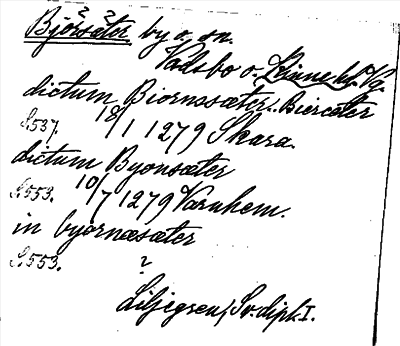 Björsæter by o. sn.
Vadsbo o. Kinne hd. Vg.
dictum Biornssæter. Bierceter
S. 537. 18/1 1279 Skara.
dictum Byonsæter
S. 553. 10/7 1279 Varnhem.
in byornæsæter
S. 553. ?
Liljegren, Sv. dipl. I.